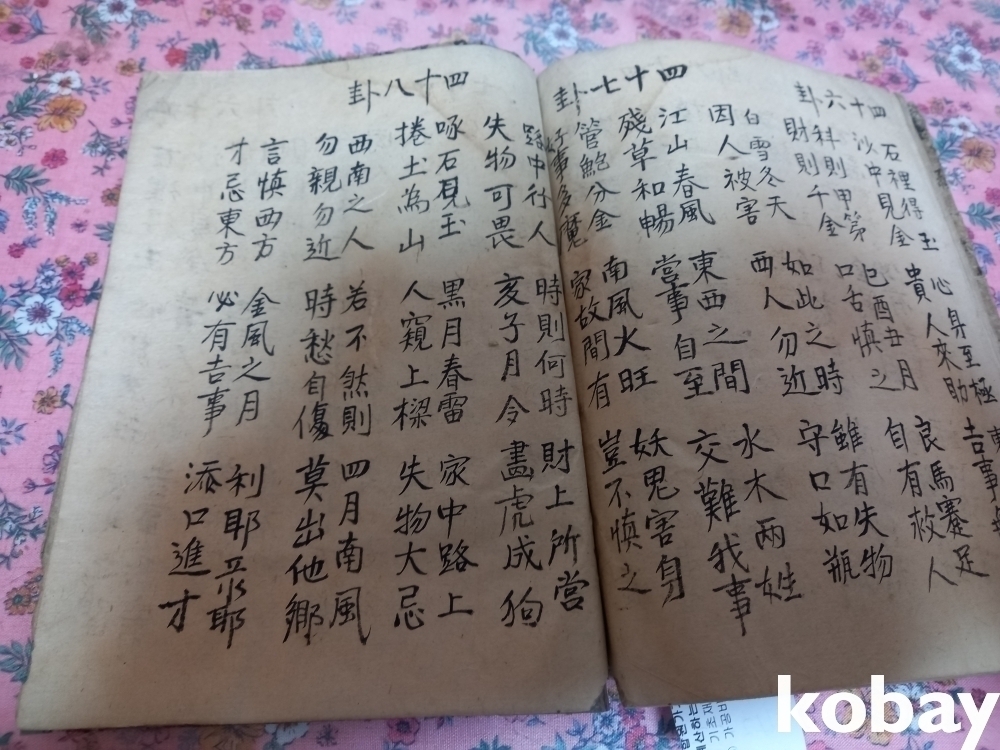 四十六卦
石裡得玉 心身至極
沙中見金 貴人來助 吉事
科則甲第 巳酉丑月 良馬蹇足
財則千金 口舌慎之 自有救人
白雪冬天 如此之時 雖有失物
因人被害 西人勿近 守口如瓶
四十七卦
江山春風 東西之間 水木兩姓
殘草和暢 當事自至 交難我事
管鮑分金 南風火旺 妖鬼害身
子事多魔 家故間有 豈不慎之
路中行人 時則何時 財上所當
失物可畏 亥子月令 畵虎成狗
四十八卦
啄石見玉 黑月春雷 家中路上
捲土為山 人窺上樑 失物大忌
西南之人 若不然則 四月南風
勿親勿近 時愁自傷 莫出他鄉
言慎西方 金風之月 利耶眾耶
才忌東方 必有吉事 添口進才
kobay